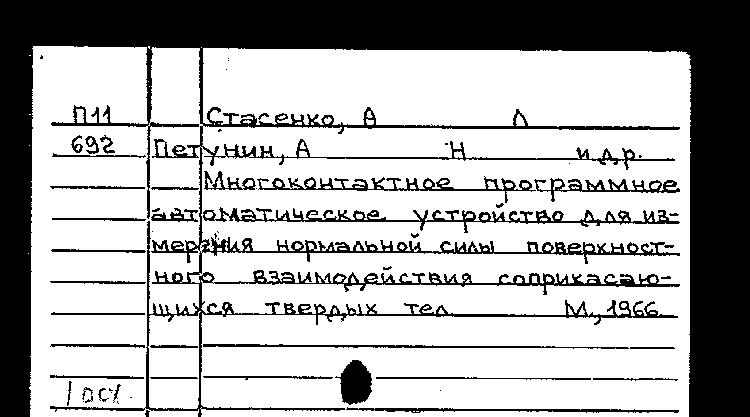 П11 Стасенко, А Л
692 Петунин, А Н и др.
Многоконтактное программное
автоматическое устройство для из-
мерения нормальной силы поверхност-
ного взаимодействия соприкасаю-
щихся твердых тел М., 1966